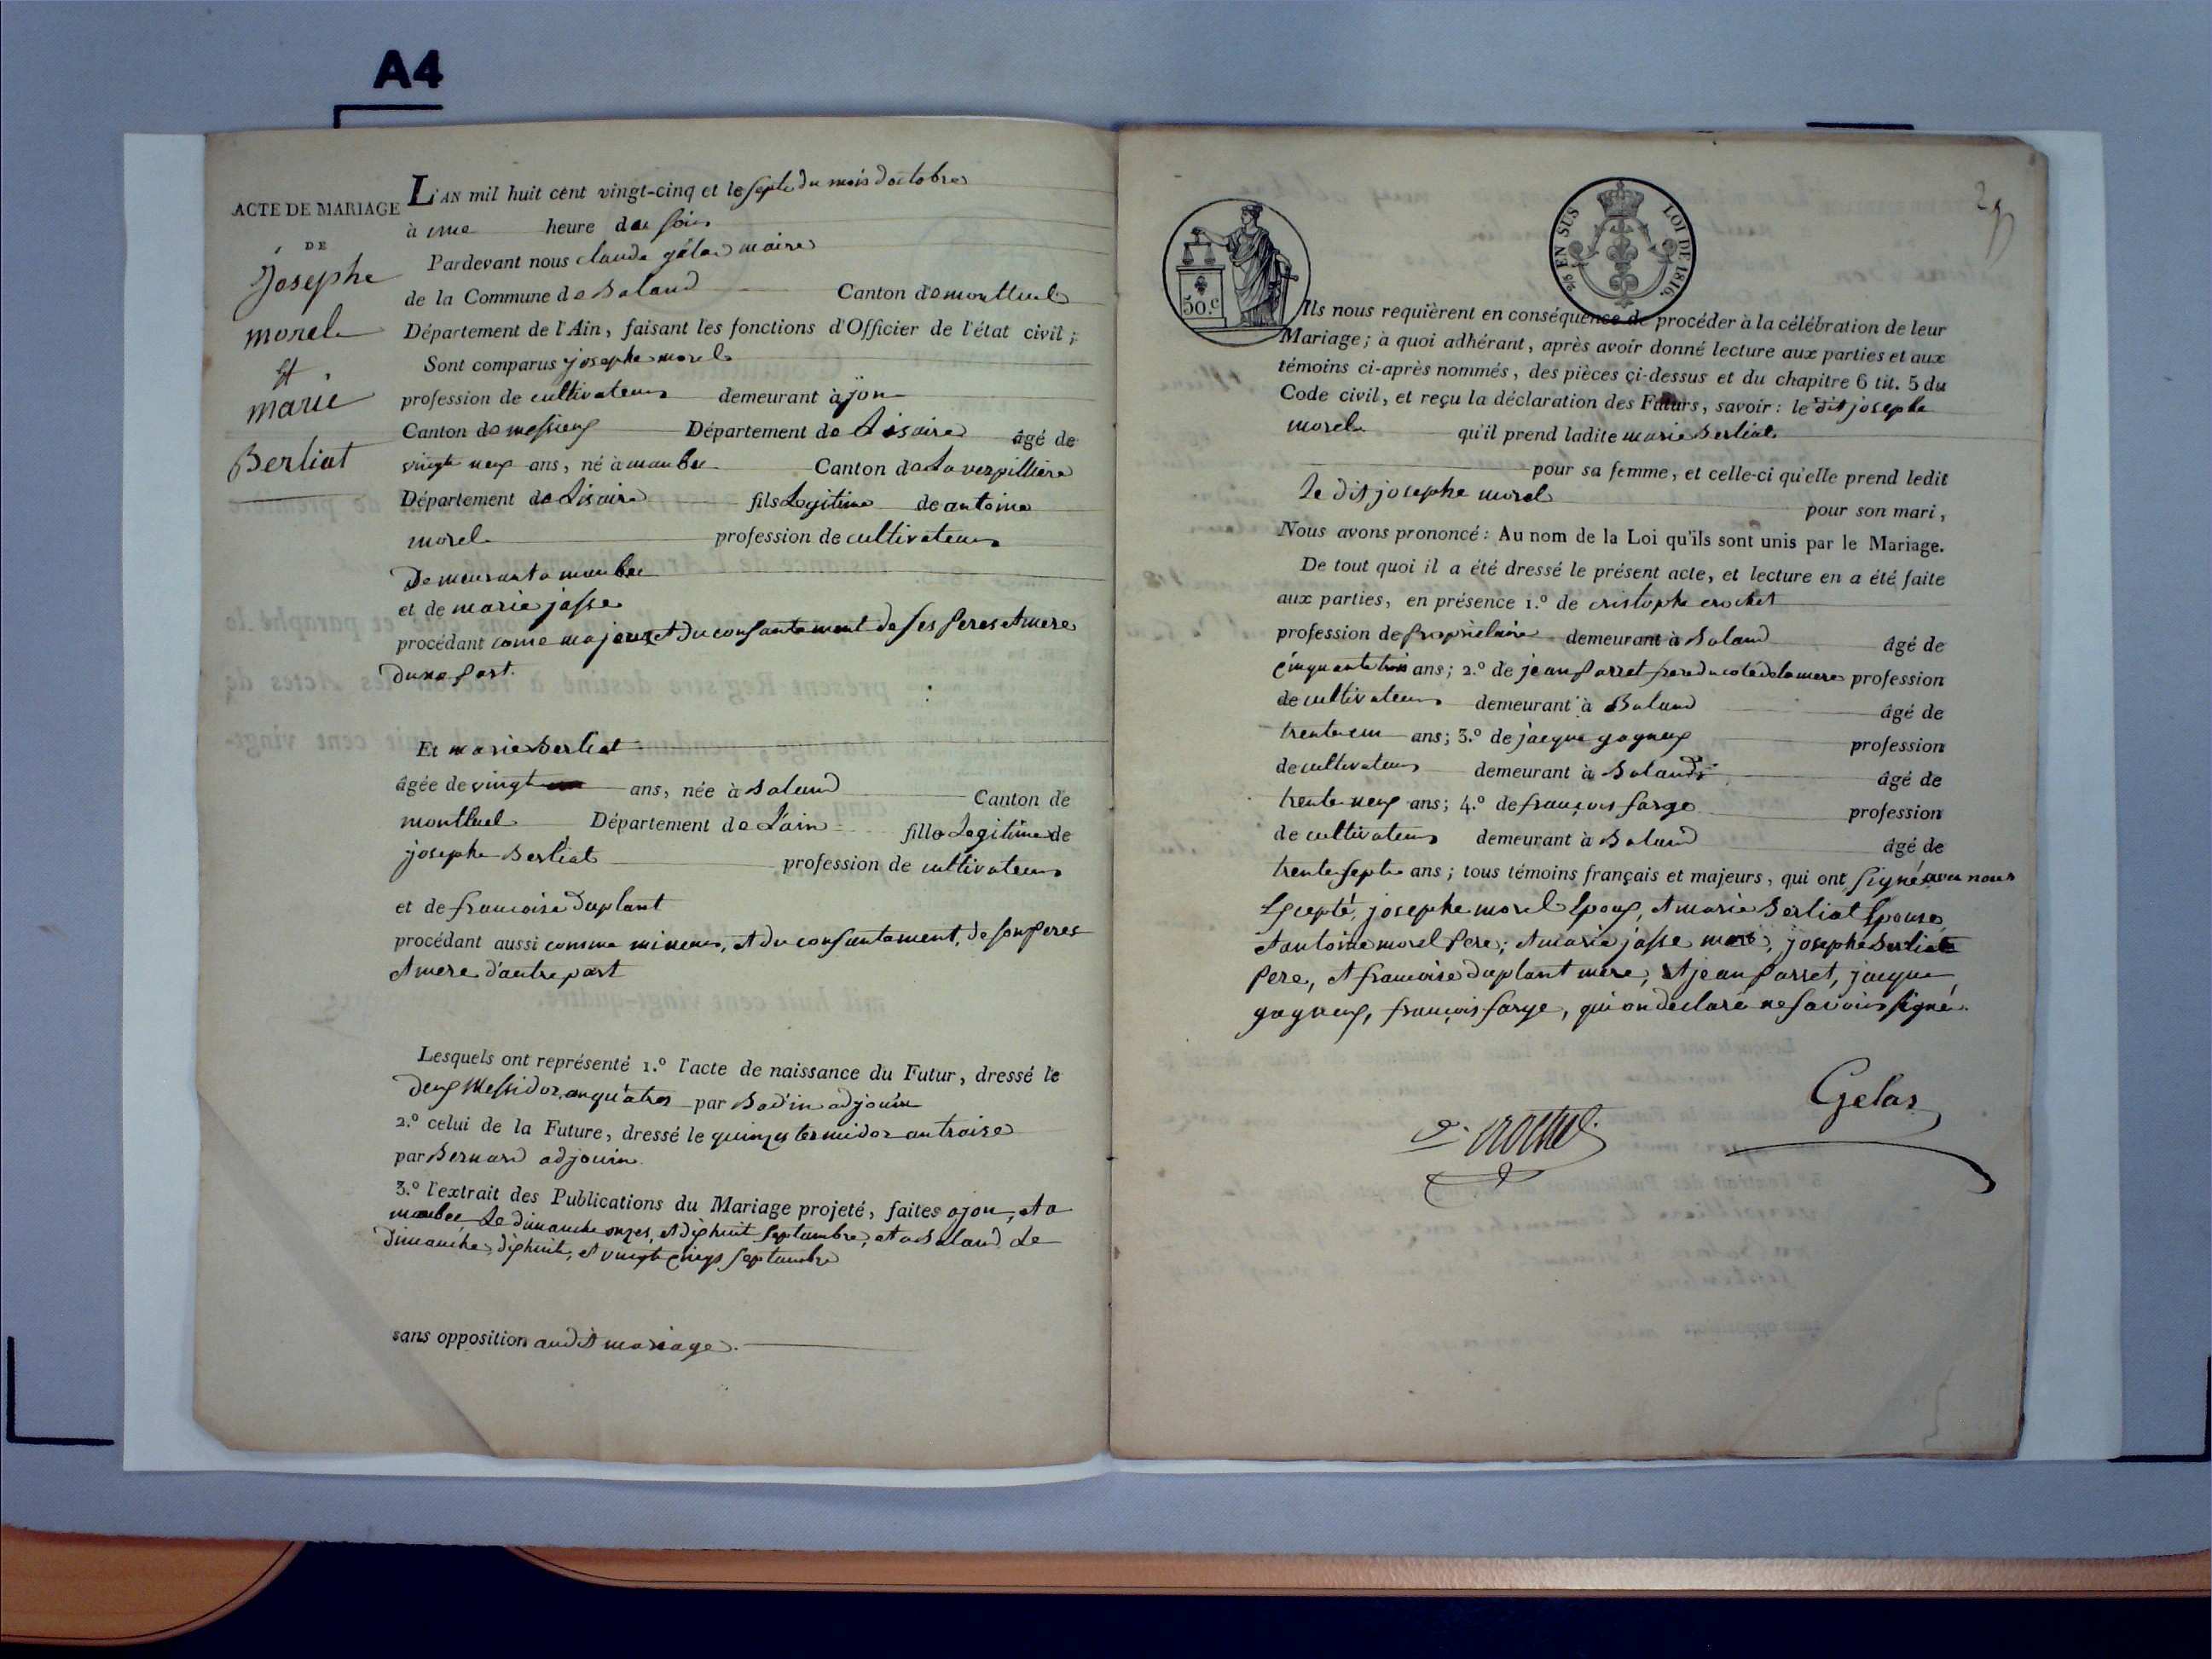 A4
ACTE DE MARIAGE
DE
Josephe
morel
Et
marie
Berliat
L'AN mil huit cent vingt-cinq et le septe du mois doctobre
à une heure du soir
Pardevant nous claude gélas maire
de la Commune de Baland Canton de montluel
Département de l'Ain, faisant les fonctions d'Officier de l'état civil;
Sont comparus josephe morel
profession de cultivateur demeurant à jon
Canton de messieux Département de Lisaire âgé de
vingt neuf ans, né à maubec Canton de La verpilliere
Département de Lisaire fils Legitime de antoine
morel profession de cultivateur
Demeurant a maubec
et de marie jasse
procédant come majeur et du consantement de ses peres et mere
dune part.
Et marie Berliat
âgée de vingt ans, née à Baland Canton de
montluel Département de L'ain fille Legitime de
josephe Berliat profession de cultivateur
et de francoise duplant
procédant aussi comme mineur, et du consantement, de son peres
et mere d'autre part
Lesquels ont représenté 1.º l'acte de naissance du Futur, dressé le
deux Messidor, an quatres par Badin adjoin
2.º celui de la Future, dressé le quinzes termidor an traise
par Bernard adjoin
3.º l'extrait des Publications du Mariage projeté, faites a jon, et a
maubec Le dimanche onzes, et dixhuit septambre, et a Baland Le
dimanche dixhuit, et vingt cinqs septambre
sans opposition audit mariage.
29
50.c
2/10 EN SUS
LOI DE 1816.
Ils nous requièrent en conséquence de procéder à la célébration de leur
Mariage; à quoi adhérant, après avoir donné lecture aux parties et aux
témoins ci-après nommés, des pièces çi-dessus et du chapitre 6 tit. 5 du
Code civil, et reçu la déclaration des Futurs, savoir: le dit josephe
morel qu'il prend ladite marie Berliat
pour sa femme, et celle-ci qu'elle prend ledit
Le dit josephe morel pour son mari,
Nous avons prononcé: Au nom de la Loi qu'ils sont unis par le Mariage.
De tout quoi il a été dressé le présent acte, et lecture en a été faite
aux parties, en présence 1.º de cristophe crochet
profession de propriètaire demeurant à Baland âgé de
cinquante trois ans; 2.º de jean parret frere du coté de la mere profession
de cultivateur demeurant à Baland âgé de
trente un ans; 3.º de jacque gagneux profession
de cultivateur demeurant à Baland âgé de
trente neuf ans; 4.º de françois farge profession
de cultivateur demeurant à Baland âgé de
trente septe ans; tous témoins français et majeurs, qui ont signé avec nous
Excepté, josephe morel Epoux, et marie Berliat Epouse,
et antoine morel pere; et marie jasse mere, josephe Berliat
pere, et francoise duplant mere, et jean parret, jacque
gagneux, françois farge, qui on declaré ne savoir signé.
Gelas
C. crochet